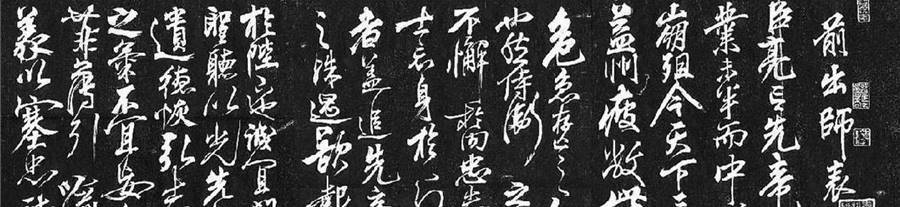 前出師表
臣亮言先帝
業未半而中
崩殂今天下三
益州疲敝此
危急存亡之
也然侍衛之
不懈於内忠
士忘身於外
者蓋追先帝
之殊遇欲報
於陛下誠宜
聖聽以光先
遺德恢弘志
之氣不宜妄
菲薄引喻
義以塞忠